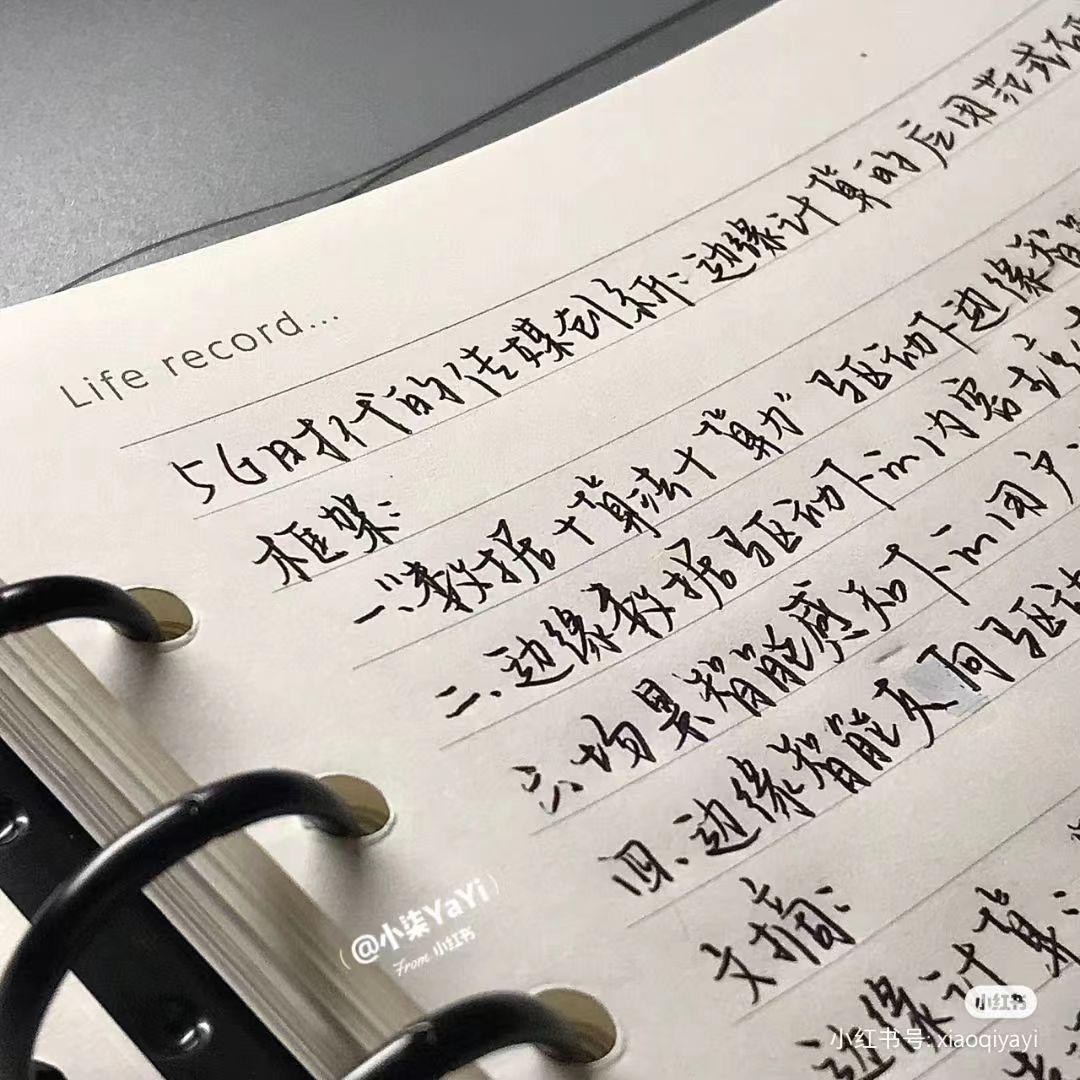 Life record...
5G时代的传媒创新：边缘计算的应用范式研
框架：
一、"数据+算法+算力"驱动下边缘智能
二、边缘数据驱动下的内容
三、场景智能感知下的用户
四、边缘智能反向驱动
文摘：
边缘计算：
(@小柒YaYi)
From 小红书
小红书
小红书号: xiaoqiyayi